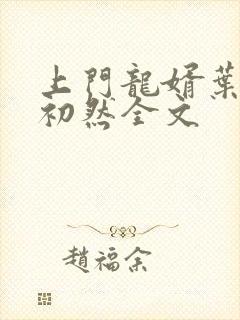 上門龍婿葉
初然全文
趙福余